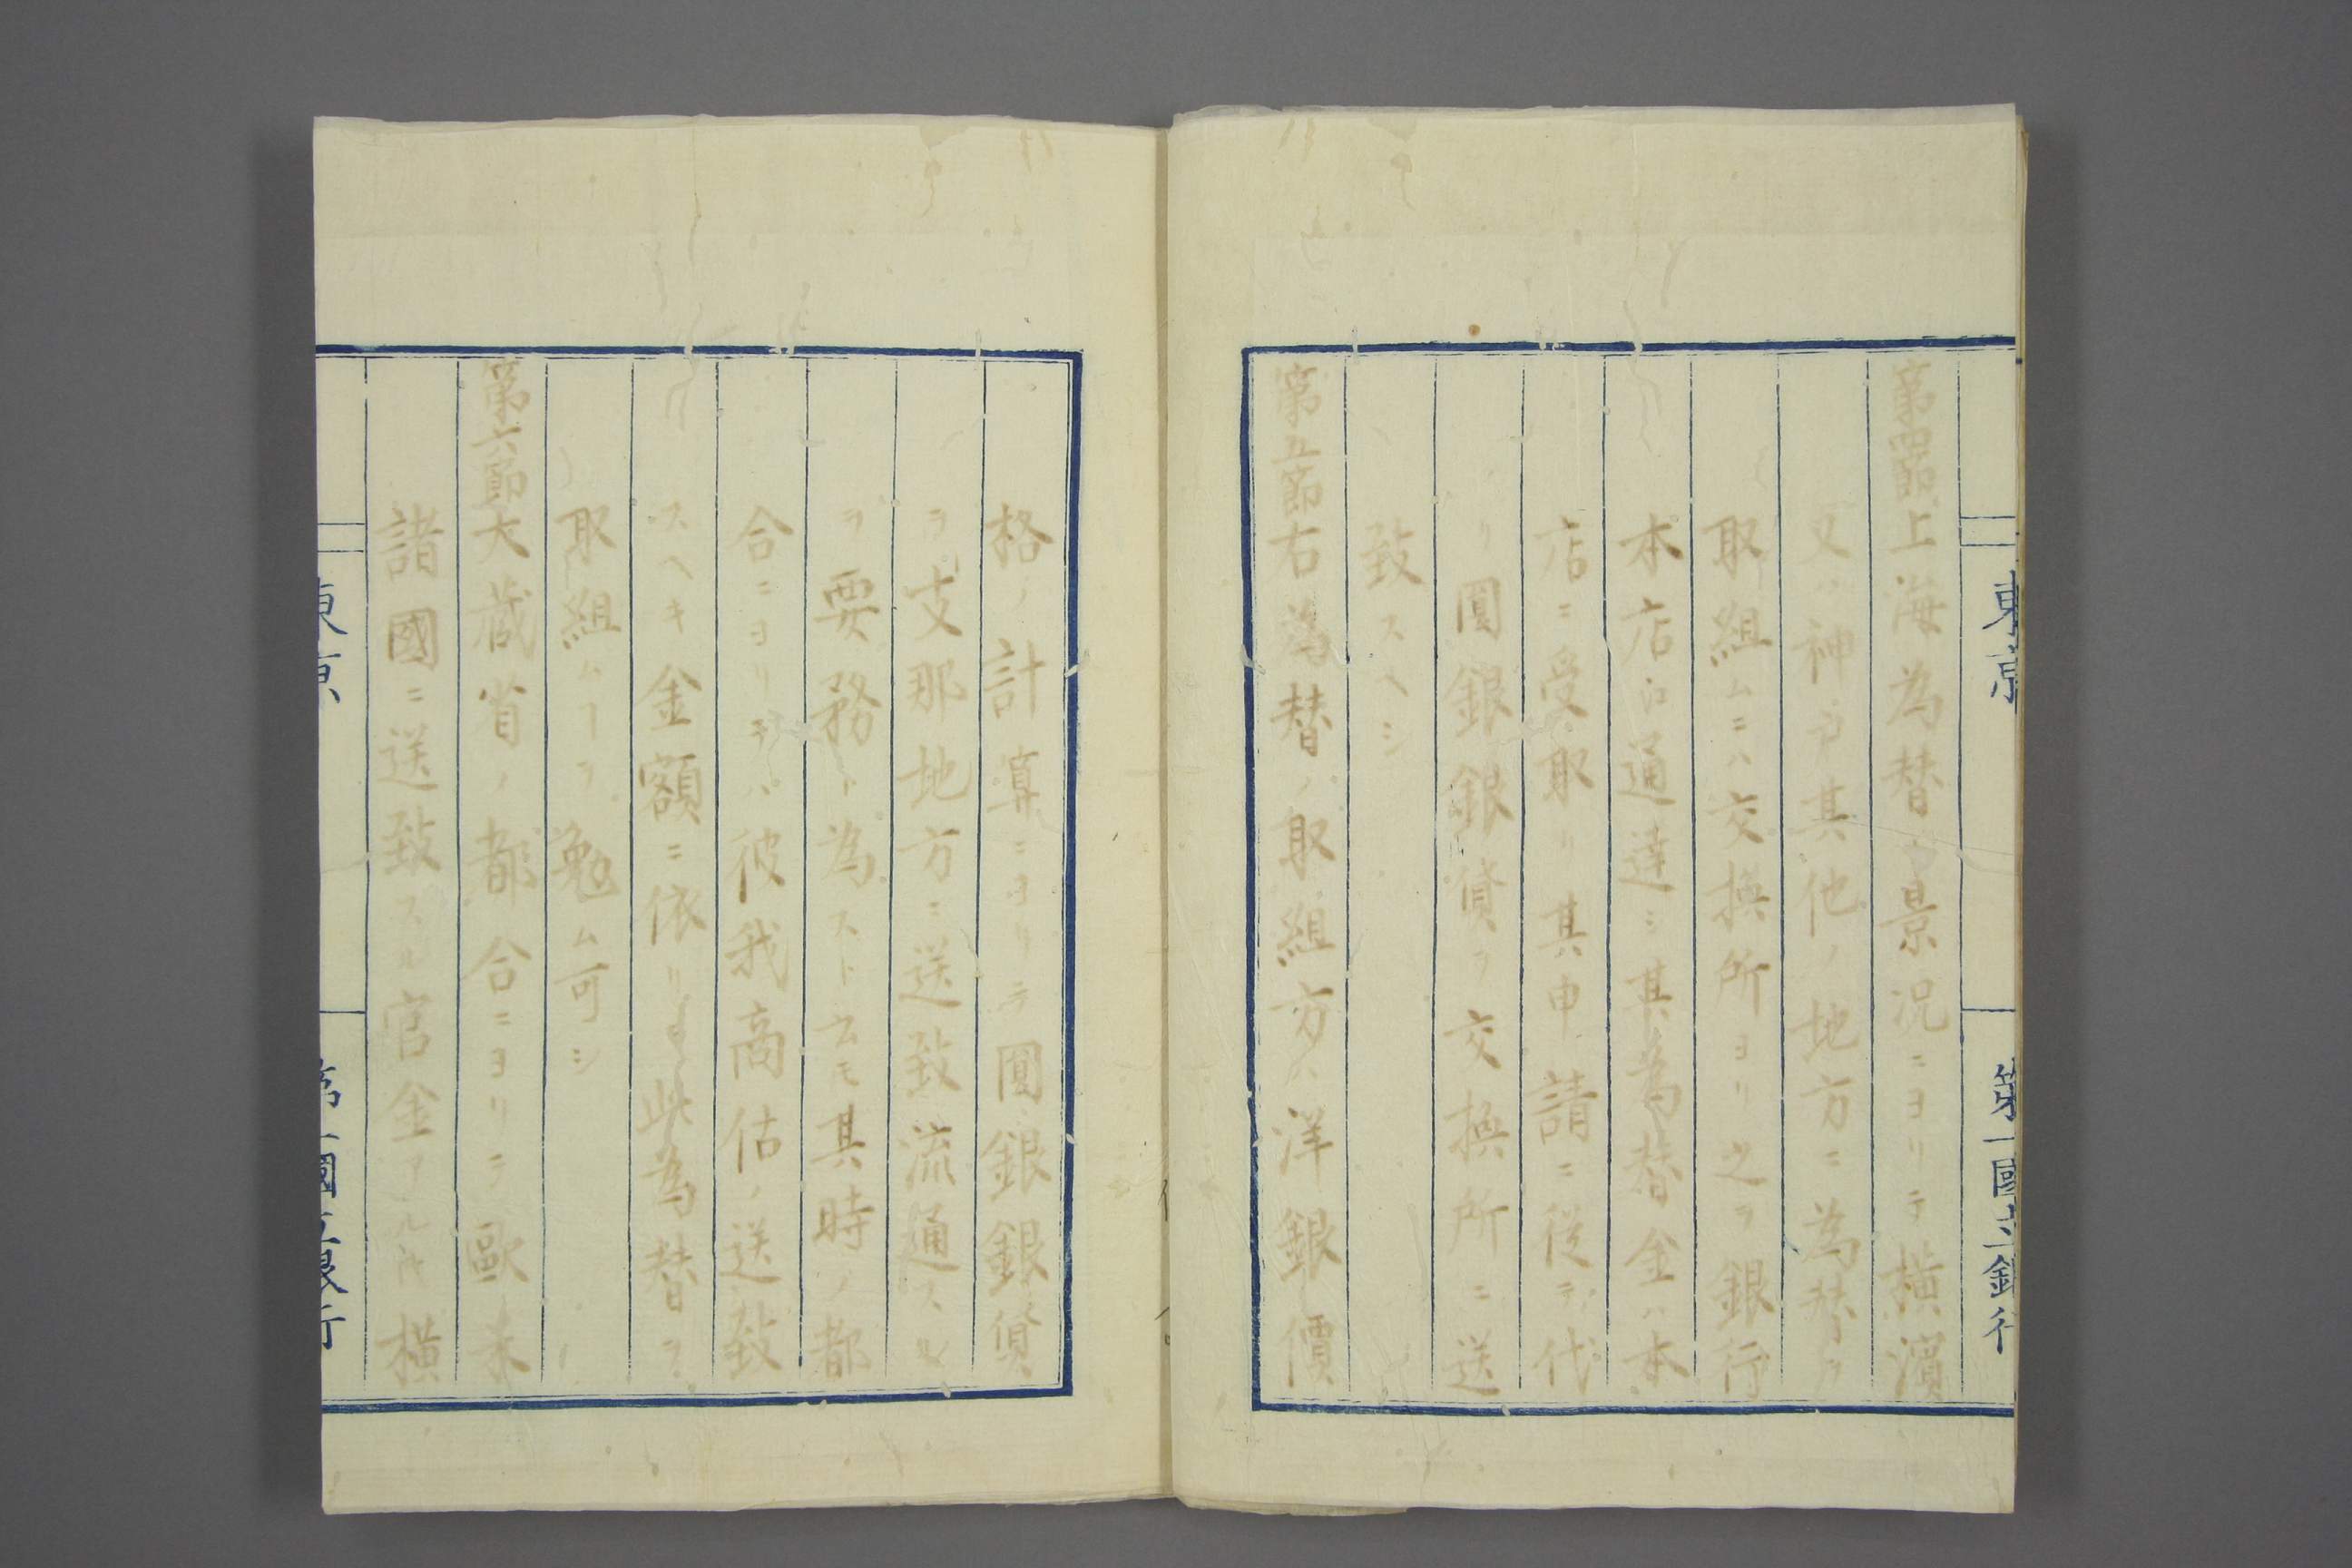 第四節上海為替ノ景況ニヨリテ横濱
又ハ神戸其他ノ地方ニ為替ヲ
取組ムニハ交換所ヨリ之ヲ銀行
本店江通達シ其為替金ハ本
店ニ受取リ其申請ニ従テ代
リ圓銀銀貨ヲ交換所ニ送
致スヘシ
第五節右為替ノ取組方ハ洋銀價
格ノ計算ニヨリテ圓銀銀貨
ヲ支那地方ニ送致流通スル
ヲ要務ト為ストムモ其時ノ都
合ニヨリテハ彼我高估ノ送致
スヘキ金額ニ依リ此為替ヲ
取組ムヿヲ勉ム可シ
第六節大蔵省ノ都合ニヨリテ歐米
諸國ニ送致スル官金アル片横
東京
第一國立銀行
東京
第一國立銀行